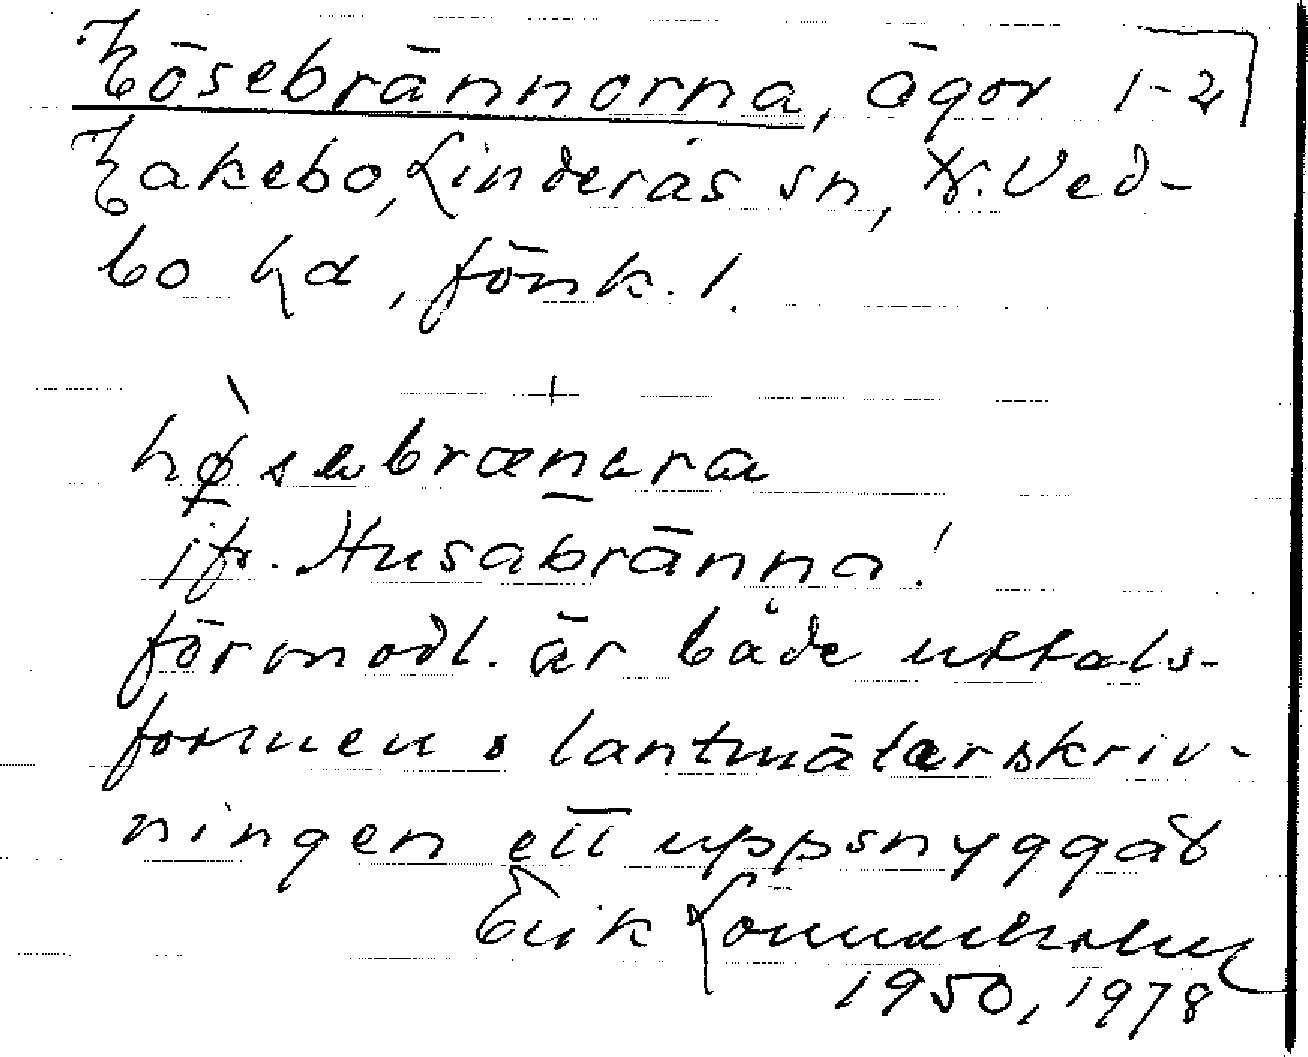 Hösebrännorna, ägor 1-2
Hakebo, Linderås sn, N. Ved-
bo hd, fönk. 1.
hø̀sabrænera
jfr. Husabränna!
förmodl. är både uttals-
formen o lantmäterskriv-
ningen ett uppsnyggat
Erik Lönnerholm
1950, 1978